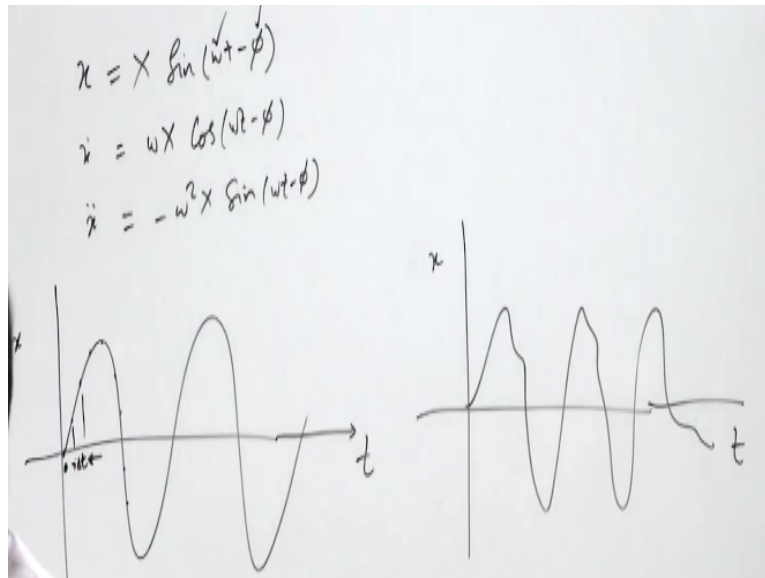 x = X Sin(ωt-φ)
ẋ = ωX Cos(ωt-φ)
ẍ = -ω²X Sin(ωt-φ)
x
t
x
t